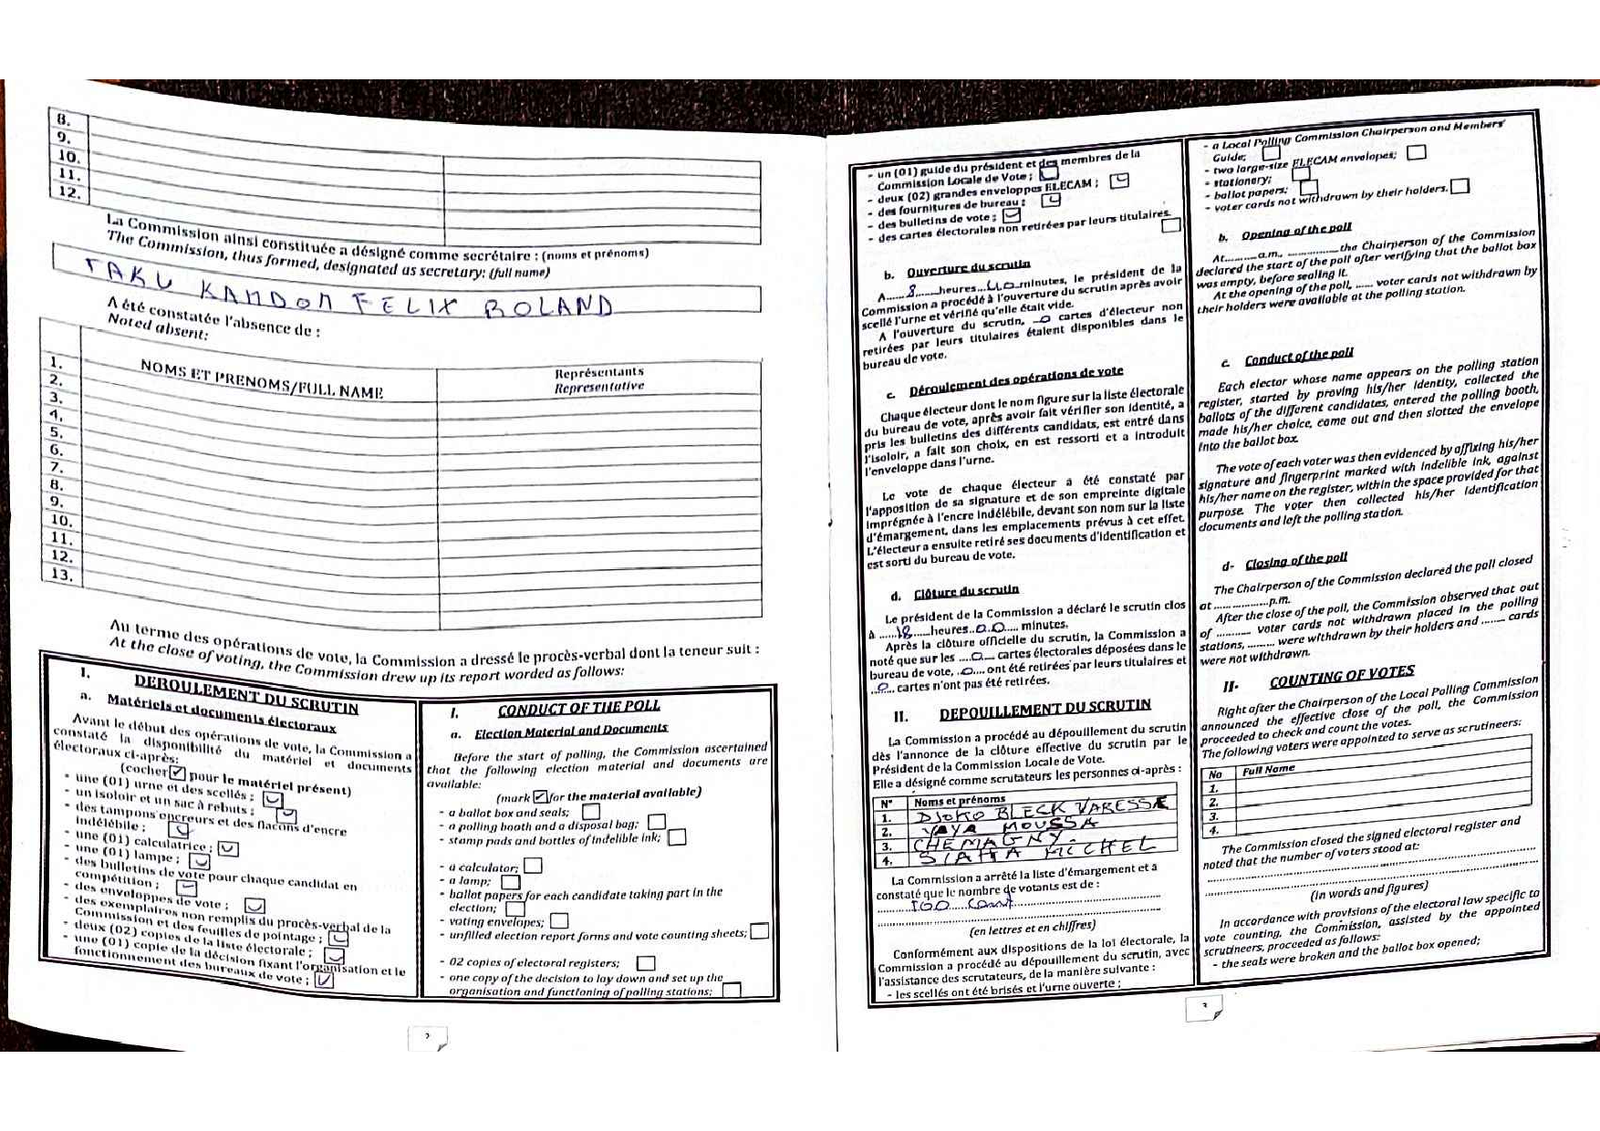 8.
9.
10.
11.
12.
La Commission ainsi constituée a désigné comme secrétaire : (noms et prénoms)
The Commission, thus formed, designated as secretary: (full name)
TAKU KAMDOM FELIX BOLAND
A été constatée l'absence de :
Noted absent:
NOMS ET PRENOMS/FULL NAME
Représentants
Representative
1.
2.
3.
4.
5.
6.
7.
8.
9.
10.
11.
12.
13.
Au terme des opérations de vote, la Commission a dressé le procès-verbal dont la teneur suit :
At the close of voting, the Commission drew up its report worded as follows:
I. DEROULEMENT DU SCRUTIN
a. Matériels et documents électoraux
Avant le début des opérations de vote, la Commission a
constaté la disponibilité du matériel et documents
électoraux ci-après:
(cocher ✓ pour le matériel présent)
- une (01) urne et des scellés ;
- un isoloir et un sac à rebuts ;
- des tampons encreurs et des flacons d'encre
indélébile ;
- une (01) calculatrice ;
- une (01) lampe ;
- des bulletins de vote pour chaque candidat en
compétition ;
- des enveloppes de vote ;
- des exemplaires non remplis du procès-verbal de la
Commission et des feuilles de pointage ;
- deux (02) copies de la liste électorale ;
- une (01) copie de la décision fixant l'organisation et le
fonctionnement des bureaux de vote ;
I. CONDUCT OF THE POLL
a. Election Material and Documents
Before the start of polling, the Commission ascertained
that the following election material and documents are
available:
(mark ✓ for the material available)
- a ballot box and seals;
- a polling booth and a disposal bag;
- stamp pads and bottles of indelible ink;
- a calculator;
- a lamp;
- ballot papers for each candidate taking part in the
election;
- voting envelopes;
- unfilled election report forms and vote counting sheets;
- 02 copies of electoral registers;
- one copy of the decision to lay down and set up the
organisation and functioning of polling stations;
- un (01) guide du président et des membres de la
Commission Locale de Vote ;
- deux (02) grandes enveloppes ELECAM ;
- des fournitures de bureau ;
- des bulletins de vote ;
- des cartes électorales non retirées par leurs titulaires
b. Ouverture du scrutin
A ......8......heures...00...minutes, le président de la
Commission a procédé à l'ouverture du scrutin après avoir
scellé l'urne et vérifié qu'elle était vide.
A l'ouverture du scrutin, ..0 cartes d'électeur non
retirées par leurs titulaires étaient disponibles dans le
bureau de vote.
c. Déroulement des opérations de vote
Chaque électeur dont le nom figure sur la liste électorale
du bureau de vote, après avoir fait vérifier son identité, a
pris les bulletins des différents candidats, est entré dans
l'isoloir, a fait son choix, en est ressorti et a introduit
l'enveloppe dans l'urne.
Le vote de chaque électeur a été constaté par
l'apposition de sa signature et de son empreinte digitale
imprégnée à l'encre indélébile, devant son nom sur la liste
d'émargement, dans les emplacements prévus à cet effet.
L'électeur a ensuite retiré ses documents d'identification et
est sorti du bureau de vote.
d. Clôture du scrutin
Le président de la Commission a déclaré le scrutin clos
à ......18......heures..00..... minutes.
Après la clôture officielle du scrutin, la Commission a
noté que sur les ....0.... cartes électorales déposées dans le
bureau de vote, ...0.... ont été retirées par leurs titulaires et
...0... cartes n'ont pas été retirées.
II. DEPOUILLEMENT DU SCRUTIN
La Commission a procédé au dépouillement du scrutin
dès l'annonce de la clôture effective du scrutin par le
Président de la Commission Locale de Vote.
Elle a désigné comme scrutateurs les personnes ci-après :
N° Noms et prénoms
1. DJOKO BLECK VARESSE
2. YAYA MOUSSA
3. CHEMAGNY
4. SIAKA MICHEL
La Commission a arrêté la liste d'émargement et a
constaté que le nombre de votants est de :
100 cent
(en lettres et en chiffres)
Conformément aux dispositions de la loi électorale, la
Commission a procédé au dépouillement du scrutin, avec
l'assistance des scrutateurs, de la manière suivante :
- les scellés ont été brisés et l'urne ouverte ;
- a Local Polling Commission Chairperson and Members'
Guide;
- two large-size ELECAM envelopes;
- stationery;
- ballot papers;
- voter cards not withdrawn by their holders.
b. Opening of the poll
At...........a.m., ...............the Chairperson of the Commission
declared the start of the poll after verifying that the ballot box
was empty, before sealing it.
At the opening of the poll, ...... voter cards not withdrawn by
their holders were available at the polling station.
c. Conduct of the poll
Each elector whose name appears on the polling station
register, started by proving his/her identity, collected the
ballots of the different candidates, entered the polling booth,
made his/her choice, came out and then slotted the envelope
into the ballot box.
The vote of each voter was then evidenced by affixing his/her
signature and fingerprint marked with indelible ink, against
his/her name on the register, within the space provided for that
purpose. The voter then collected his/her identification
documents and left the polling station.
d- Closing of the poll
The Chairperson of the Commission declared the poll closed
at .................p.m.
After the close of the poll, the Commission observed that out
of .......... voter cards not withdrawn placed in the polling
stations, ......... were withdrawn by their holders and ........ cards
were not withdrawn.
II- COUNTING OF VOTES
Right after the Chairperson of the Local Polling Commission
announced the effective close of the poll, the Commission
proceeded to check and count the votes.
The following voters were appointed to serve as scrutineers:
No Full Name
1.
2.
3.
4.
The Commission closed the signed electoral register and
noted that the number of voters stood at:
(in words and figures)
In accordance with provisions of the electoral law specific to
vote counting, the Commission, assisted by the appointed
scrutineers, proceeded as follows:
- the seals were broken and the ballot box opened;
3